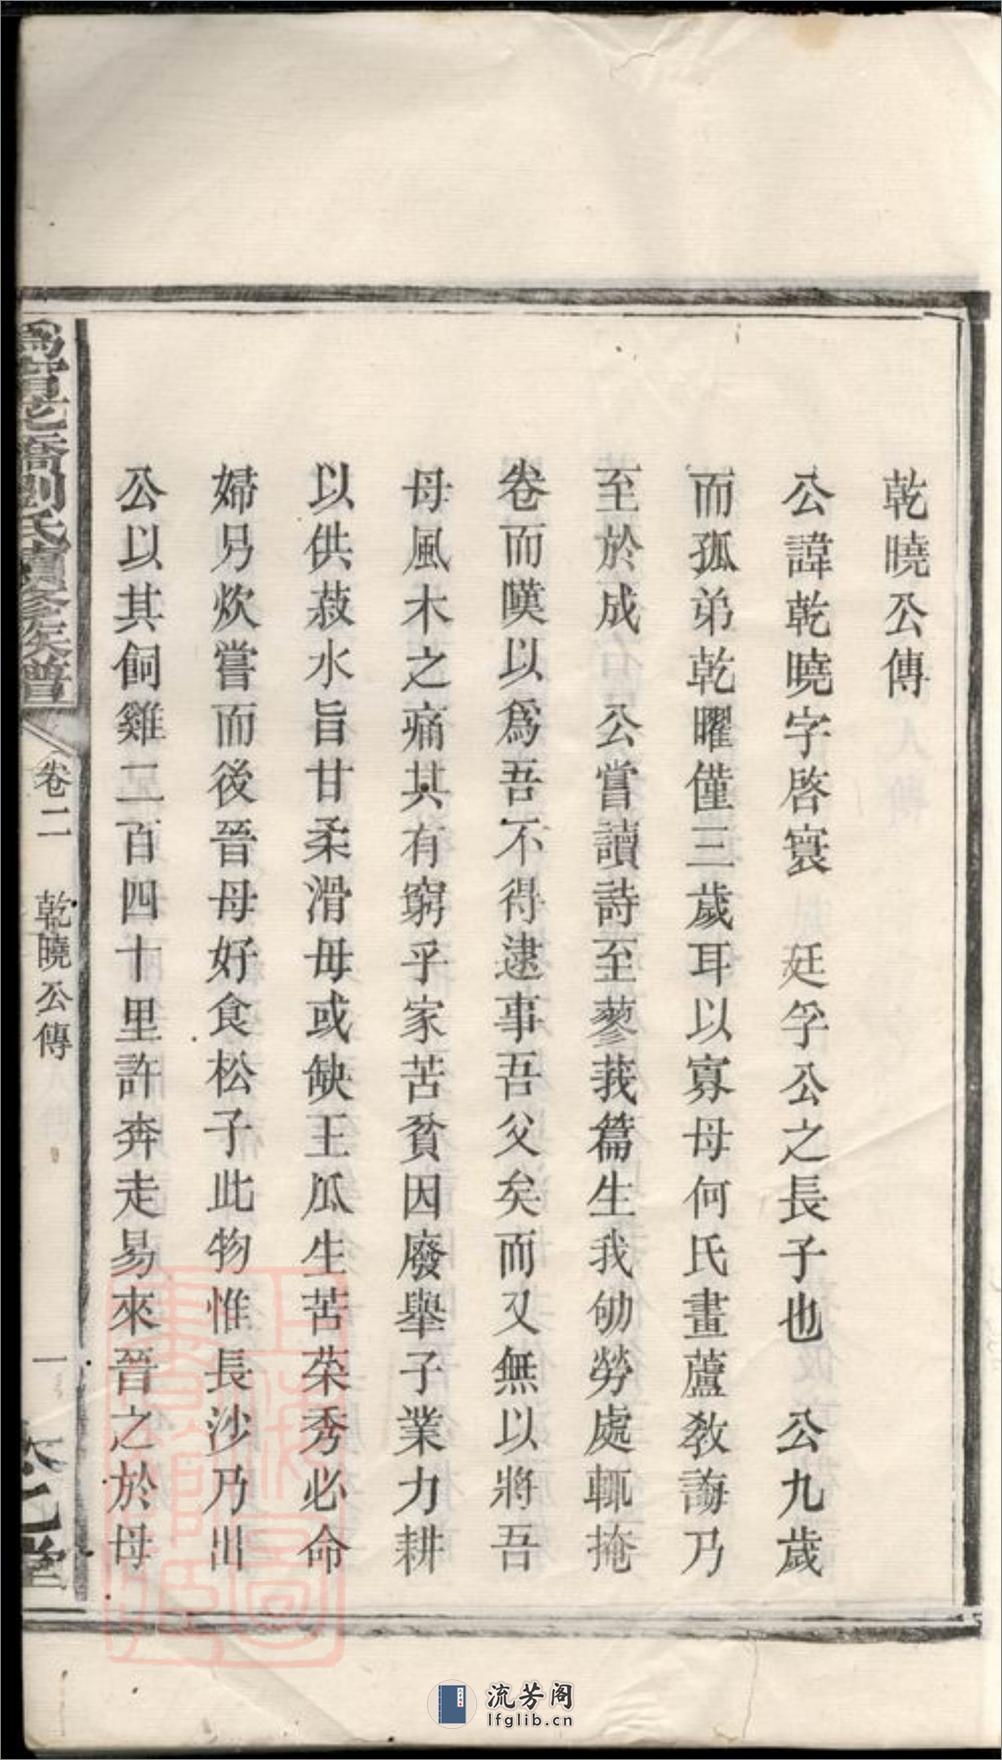 乾曉公傳
公諱乾曉字啓寰 廷孚公之長子也 公九歲
而孤弟乾曜僅三歲耳以寡母何氏畫蘆敎誨乃
至於成 公嘗讀詩至蓼莪篇生我劬勞處輒掩
卷而嘆以爲吾不得逮事吾父矣而又無以將吾
母風木之痛其有窮乎家苦貧因廢舉子業力耕
以供菽水旨甘柔滑毋或缺王瓜生苦菜秀必命
婦另炊嘗而後晉母好食松子此物惟長沙乃出
公以其飼雞二百四十里許奔走易來晉之於母
橋劉氏續修族譜
卷二 乾曉公傳
一
堂
上海圖書館藏
流芳阁
lfglib.cn